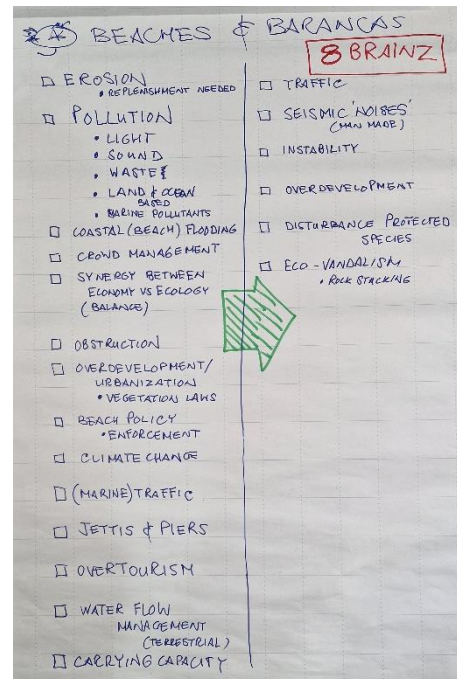 A BEACHES & BARANCAS
8 BRAINZ
□ EROSION
• REPLENISHMENT NEEDED
□ POLLUTION
• LIGHT
• SOUND
• WASTE
• LAND & OCEAN
BASED
• MARINE POLLUTANTS
□ COASTAL (BEACH) FLOODING
□ CROWD MANAGEMENT
□ SYNERGY BETWEEN
ECONOMY VS ECOLOGY
(BALANCE)
□ OBSTRUCTION
□ OVERDEVELOPMENT/
URBANIZATION
• VEGETATION LAWS
□ BEACH POLICY
• ENFORCEMENT
□ CLIMATE CHANGE
□ (MARINE) TRAFFIC
□ JETTIS & PIERS
□ OVERTOURISM
□ WATER FLOW
MANAGEMENT
(TERRESTRIAL)
□ CARRYING CAPACITY
□ TRAFFIC
□ SEISMIC 'NOISES'
(MAN MADE)
□ INSTABILITY
□ OVERDEVELOPMENT
□ DISTURBANCE PROTECTED
SPECIES
□ ECO-VANDALISM
• ROCK STACKING